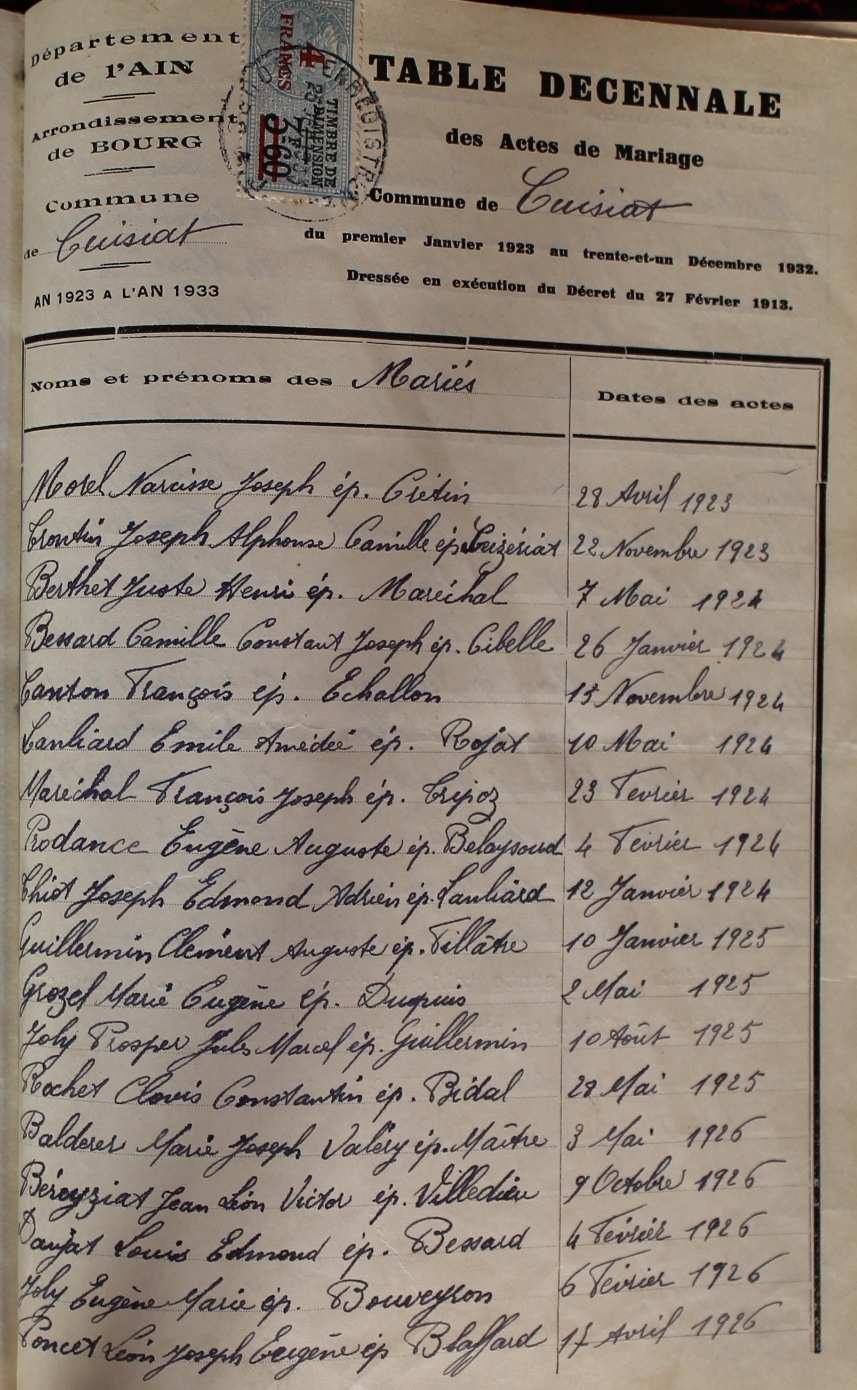 Département
de l'AIN
Arrondissement
de BOURG
Commune
de Cuisiat
AN 1923 A L'AN 1933
4
FRANCS
TIMBRE DE
DIMENSION
3F60
ENREGISTRE
TABLE DECENNALE
des Actes de Mariage
Commune de Cuisiat
du premier Janvier 1923 au trente-et-un Décembre 1932.
Dressée en exécution du Décret du 27 Février 1913.
Noms et prénoms des Mariés Dates des actes
Morel Narcisse Joseph ép. Crétin 28 Avril 1923
Trontin Joseph Alphonse Camille ép. Luizériat 22 Novembre 1923
Berthet Juste Henri ép. Maréchal 7 Mai 1924
Bessard Camille Constant Joseph ép. Cibelle 26 Janvier 1924
Canton François ép. Echallon 15 Novembre 1924
Lanliard Emile Amédéé ép. Rojat 10 Mai 1924
Maréchal François Joseph ép. Tripoz 23 Fevrier 1924
Prodance Eugène Auguste ép. Belaysoud 4 Février 1924
Thiot Joseph Edmond Adrien ép. Lanliard 12 Janvier 1924
Guillermin Clément Auguste ép. Fillâtre 10 Janvier 1925
Grozel Marie Eugène ép. Dupuis 2 Mai 1925
Joly Prosper Jules Marcel ép. Guillermin 10 Août 1925
Rochet Clovis Constantin ép. Bidal 28 Mai 1925
Balderer Marie Joseph Valéry ép. Maître 3 Mai 1926
Béreyziat Jean Léon Victor ép. Villedieu 9 Octobre 1926
Danjat Louis Edmond ép. Bessard 4 Février 1926
Joly Eugène Marie ép. Bouveyron 6 Février 1926
Poncet Léon Joseph Eugène ép Blaffard 17 Avril 1926